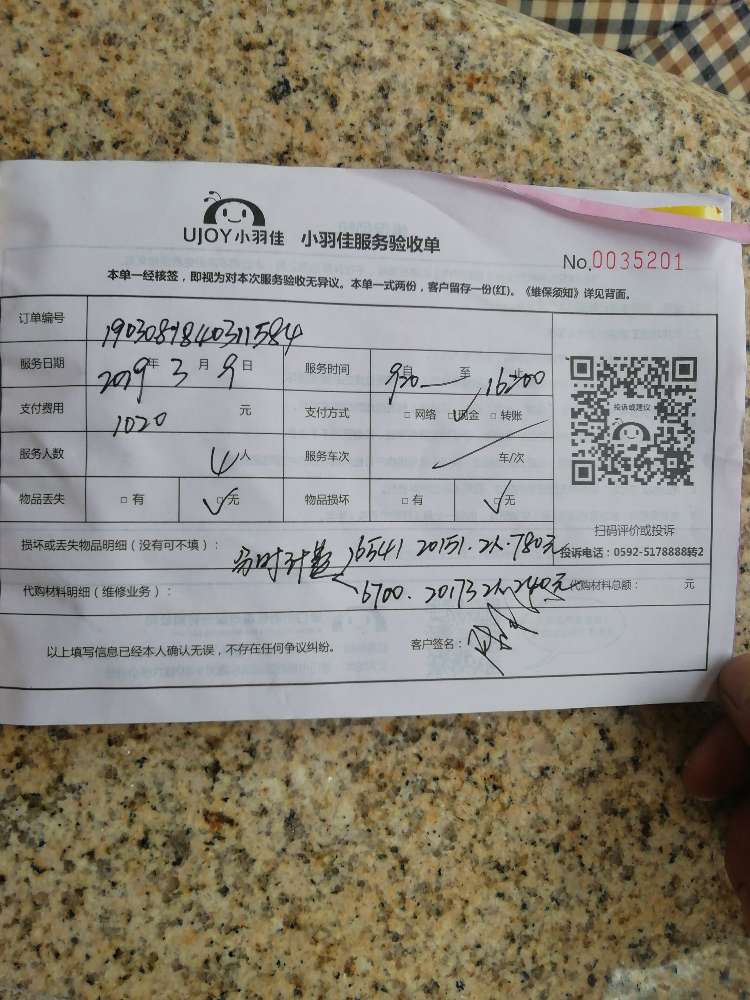 UJOY小羽佳 小羽佳服务验收单
No.0035201
本单一经核签，即视为对本次服务验收无异议。本单一式两份，客户留存一份(红)。《维保须知》详见背面。
订单编号 1903081840311584
服务日期 2019年3月9日 服务时间 920自 至 16:00止
支付费用 1020 元 支付方式 □ 网络 □现金 □ 转账
服务人数 4人 服务车次 车/次
物品丢失 □ 有 □无 物品损坏 □ 有 □无
投诉或建议
扫码评价或投诉
投诉电话：0592-5178888转2
损坏或丢失物品明细（没有可不填）： 分时计数 16541 20151.2人.780元
代购材料明细（维修业务）： 6700.20173 2人240元 代购材料总额： 元
以上填写信息已经本人确认无误，不存在任何争议纠纷。 客户签名：